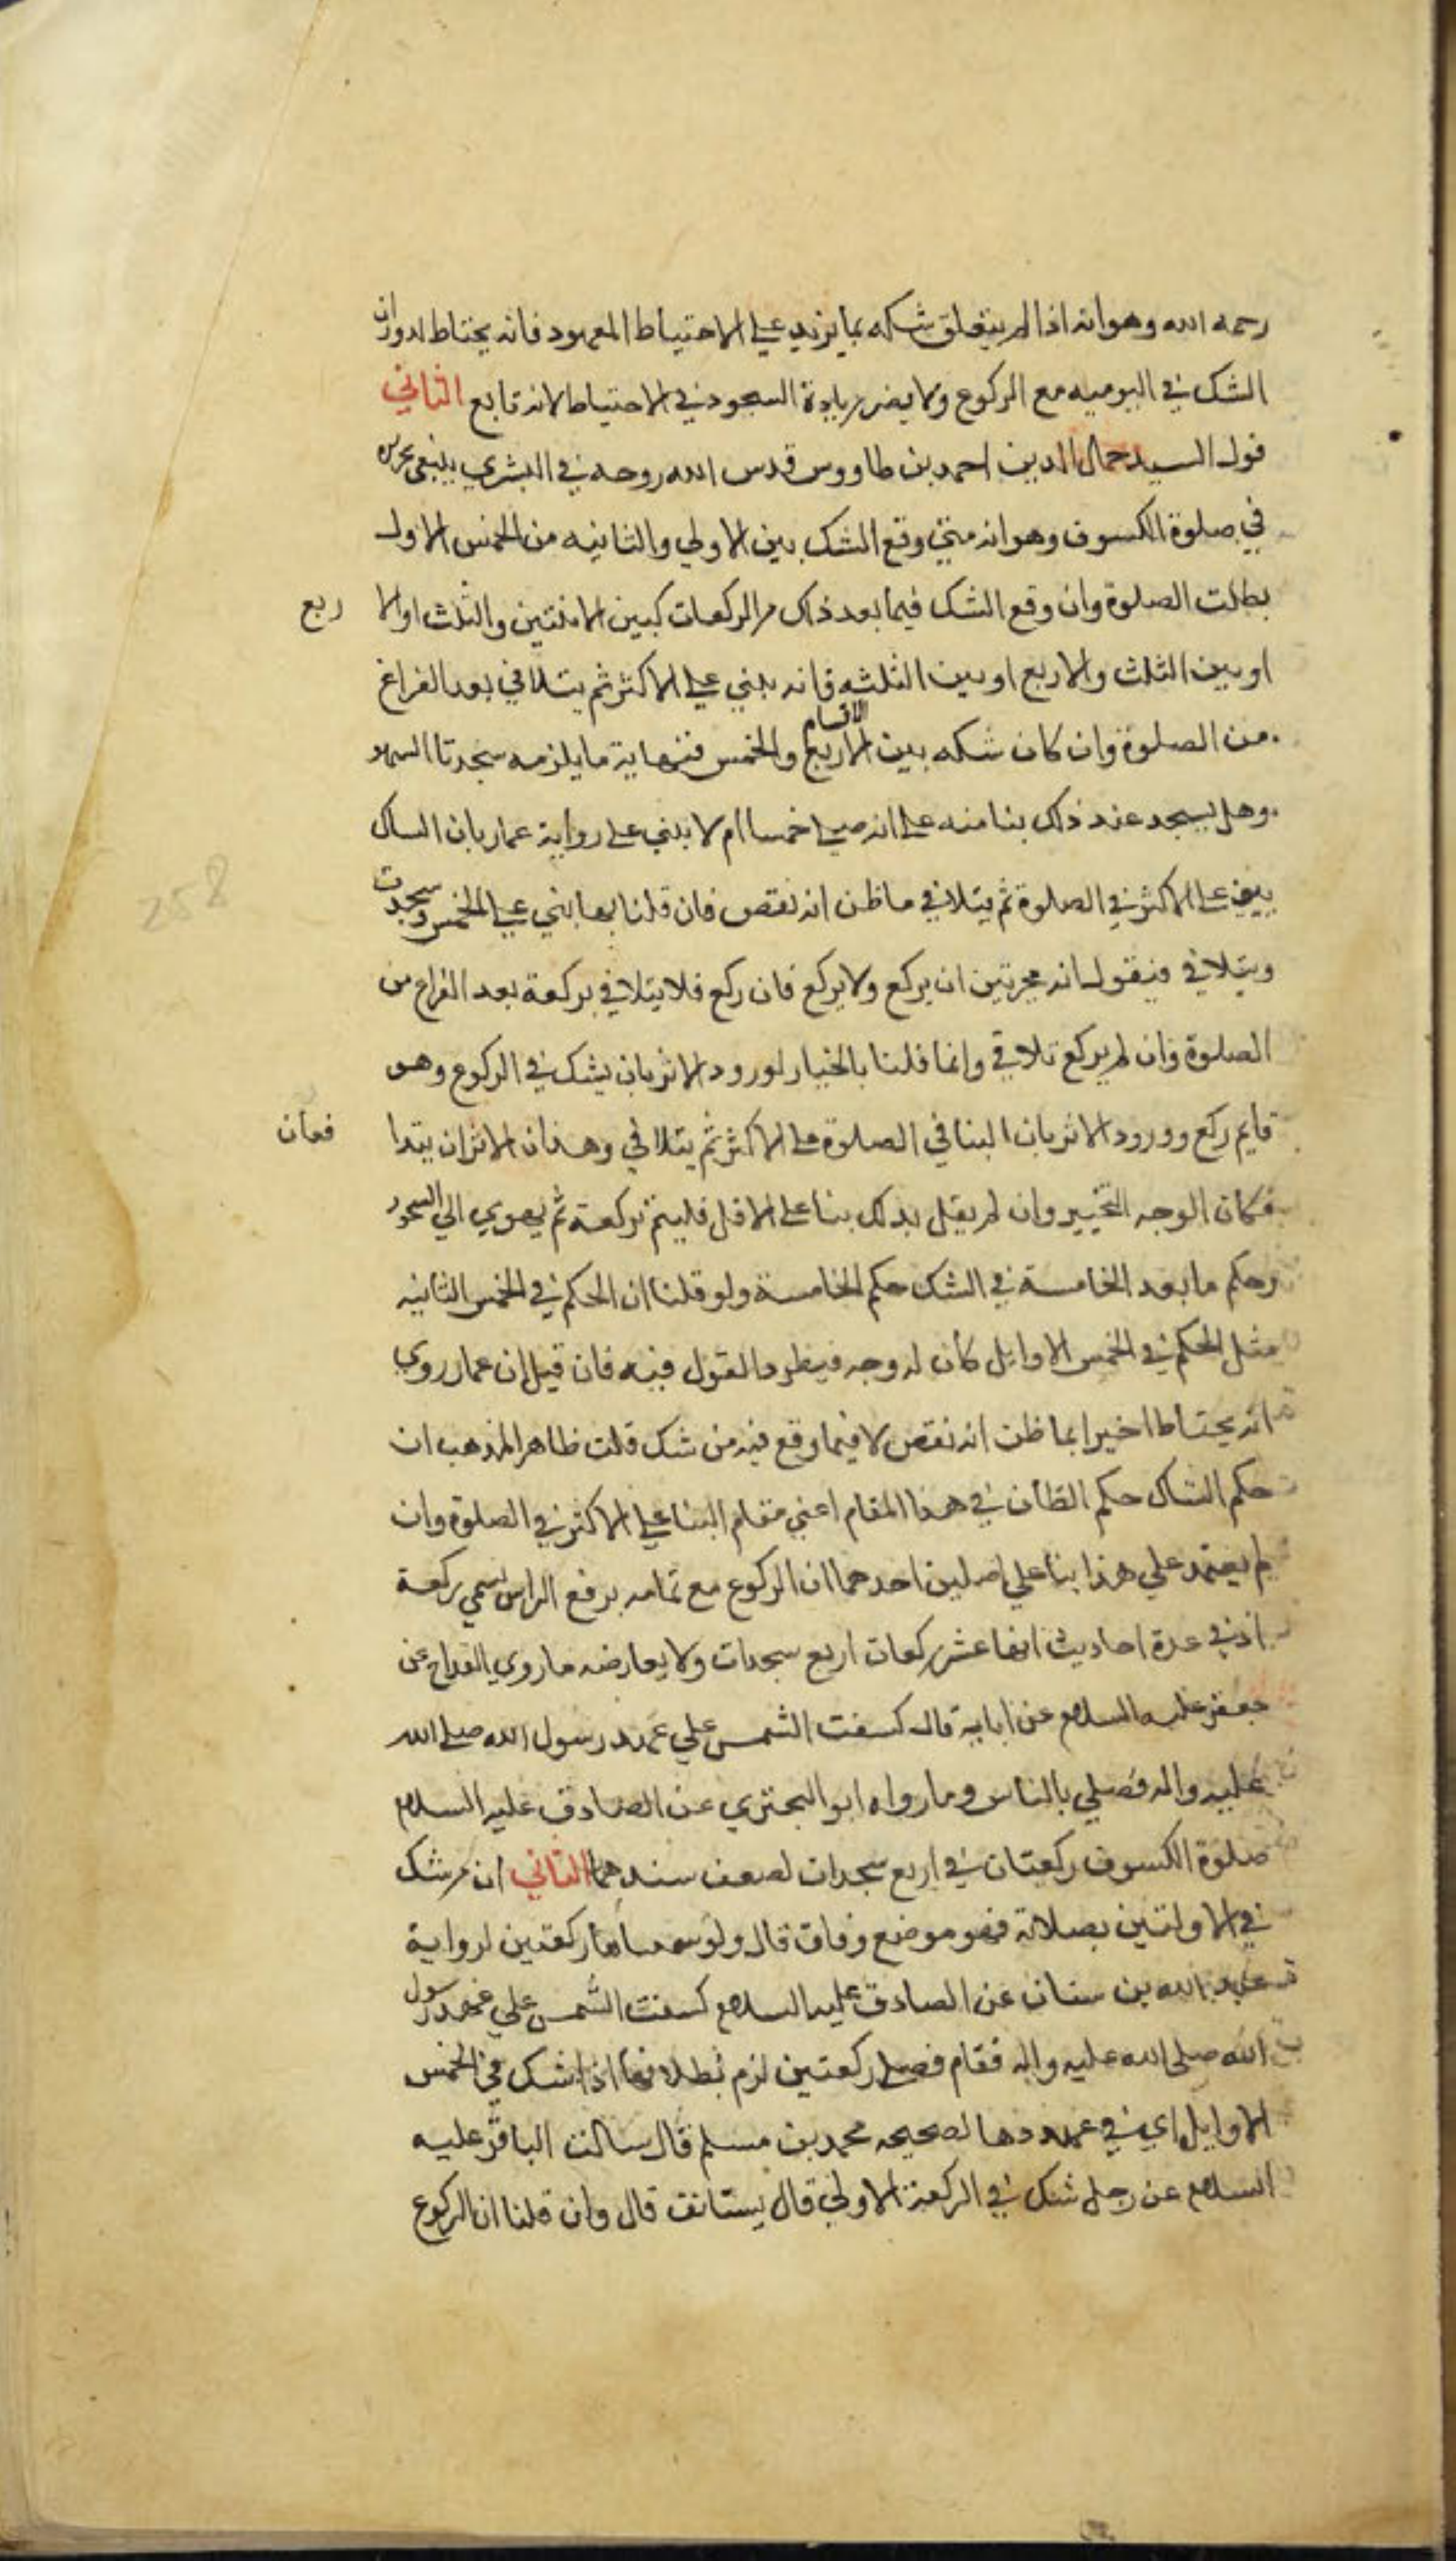 رحمه الله وهو انه اذا لم يتعلق شكه بما يزيد علي الاحتياط المعهود فانه يحتاط لدوران
الشك في اليوميه مع الركوع ولا يضر زيادة السجود في الاحتياط لانه تابع الثاني
قول السيد جمال الدين احمد بن طاووس قدس الله روحه في البشري ينبغي
في صلوة الكسوف وهو انه متي وقع الشك بين الاولي والثانيه من الخمس الاول
بطلت الصلوة وان وقع الشك فيما بعد ذلك من الركعات كبين الاثنتين والثلث او الا ربع
او بين الثلث والاربع او بين الثلثه فانه يبني علي الاكثر ثم يتلافي بعد الفراغ
من الصلوة وان كان شكه بين الاربع والخمس فنهاية ما يلزمه سجدتا السهو
الاقسام
وهل يسجد عند ذلك بنا منه علي انه صلي خمسا ام لا يبني علي رواية عمار بان الشاك
يبني علي الاكثر في الصلوة ثم يتلافي ما ظن انه نقص فان قلنا بها بني علي الخمس وسجدت
ويتلافي فنقول انه بين ان يركع ولا يركع فان ركع فلا يتلافي بركعة بعد الفراغ من
الصلوة وان لم يركع تلافي وانما قلنا بالخيار لورود الاثر بان يشك في الركوع وهو
قايم ركع وورود الاثر بان البنا في الصلوة علي الاكثر ثم يتلافي وهذان الاثران يتدا فعان
فكان الوجه التخيير وان لم يقل بذلك بنا علي الاقل فليتم بركعة ثم يهوي الي السجود
وحكم ما بعد الخامسة في الشك حكم الخامسة ولو قلنا ان الحكم في الخمس الثانيه
مثل الحكم في الخمس الاوايل كان له وجه فيطرد القول فيه فان قيل ان عمار روي
انه يحتاط اخيرا بما ظن انه نقص لا فيما وقع فيه من شك قلت ظاهر المذهب ان
حكم الشاك حكم الظان في هذا المقام اعني مقام البنا علي الاكثر في الصلوة وان
لم يعتمد علي هذا بنا علي اصلين احدهما ان الركوع مع تمامه برفع الراس يسمي ركعة
اذ في عدة احاديث انها عشر ركعات اربع سجدات ولا يعارضه ما روي القداح عن
جعفر عليه السلام عن ابايه قال كسفت الشمس علي عهد رسول الله صلي الله
عليه واله فصلي بالناس وما رواه ابو البختري عن الصادق عليه السلام
صلوة الكسوف ركعتان في اربع سجدات لضعف سندهما الثاني ان من شك
في الاولتين بصلاته فهو موضع وفاق قال ولو سميناها ركعتين لرواية
عبد الله بن سنان عن الصادق عليه السلام كسفت الشمس علي عهد رسول
الله صلي الله عليه واله فقام فصلي ركعتين لزم بطلانها اذا شك في الخمس
الاوايل اي في عددها لصحيحه محمد بن مسلم قال سالت الباقر عليه
السلام عن رجل شك في الركعة الاولي قال يستانف قال وان قلنا ان الركوع
258